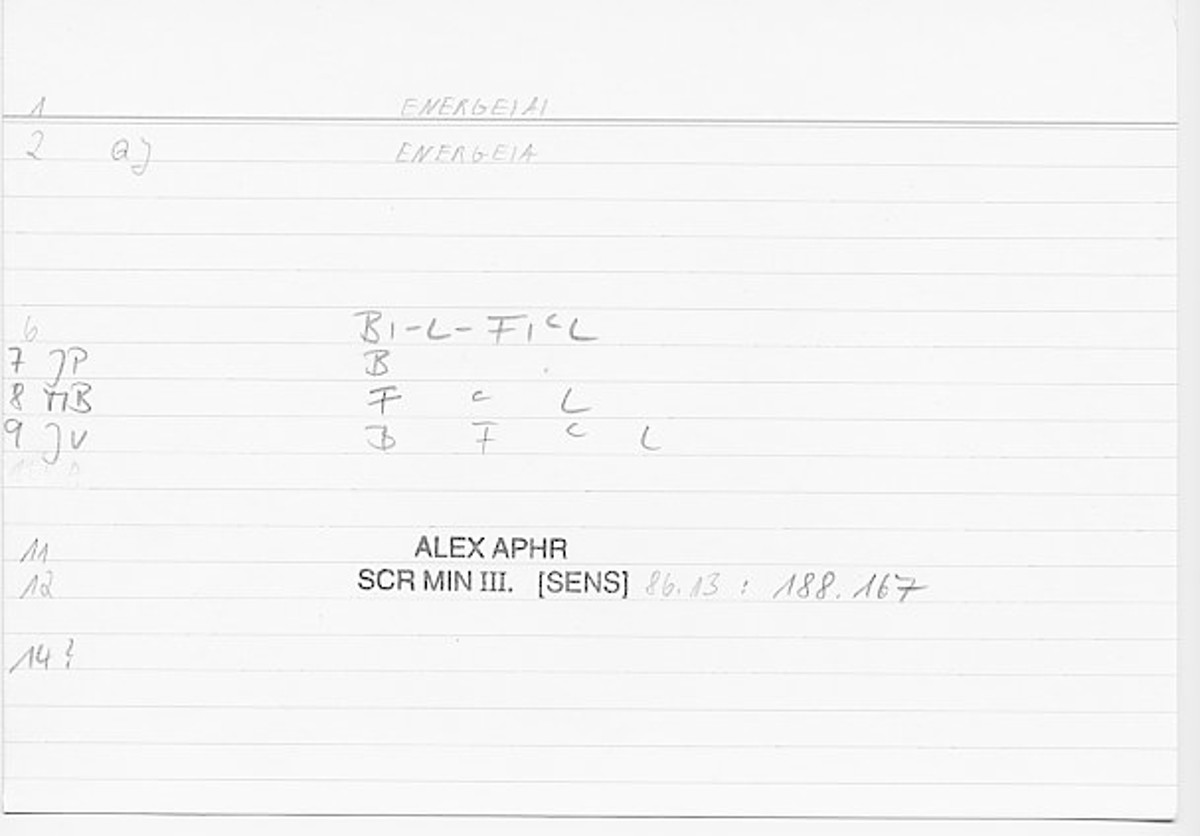 1 ENERGEIAI
2 a) ENERGEIA
6 BI-L-FICL
7 JP B
8 MB F C L
9 JV B F C L
11 ALEX APHR
12 SCR MIN III. [SENS] 86.13 : 188.167
14}